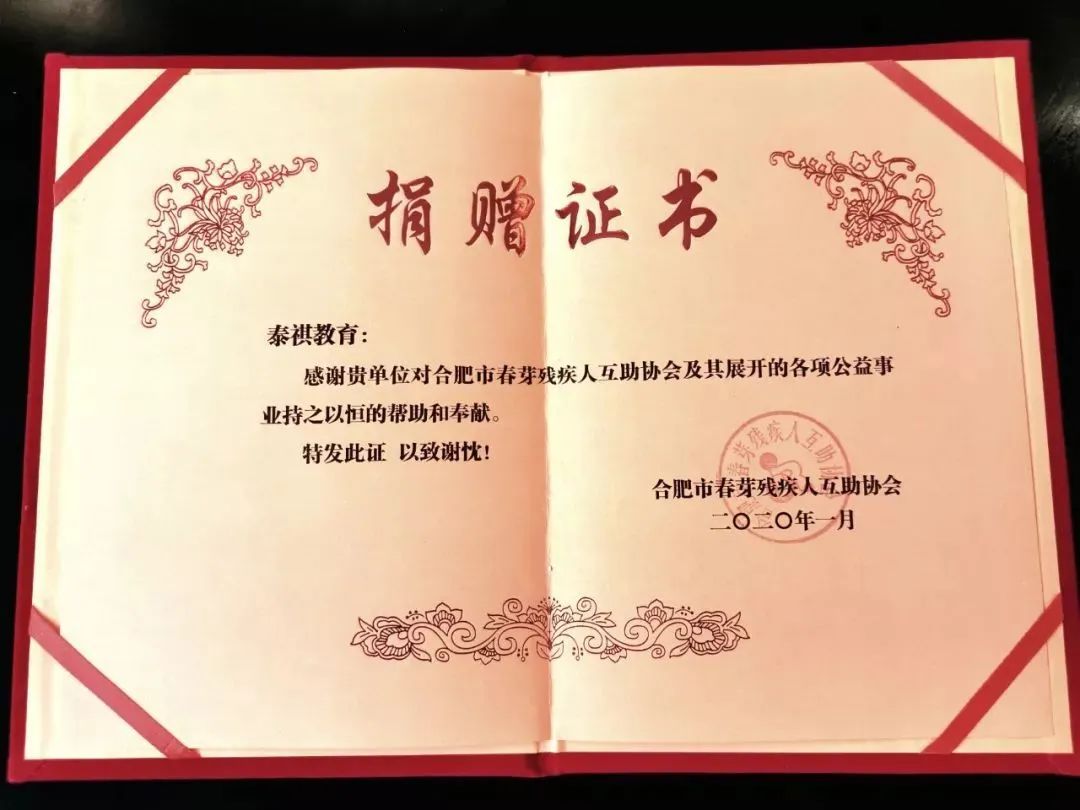 捐赠证书
泰祺教育：
感谢贵单位对合肥市春芽残疾人互助协会及其展开的各项公益事
业持之以恒的帮助和奉献。
特发此证 以致谢忱！
合肥市春芽残疾人互助协会
二〇二〇年一月
春芽残疾人互助协